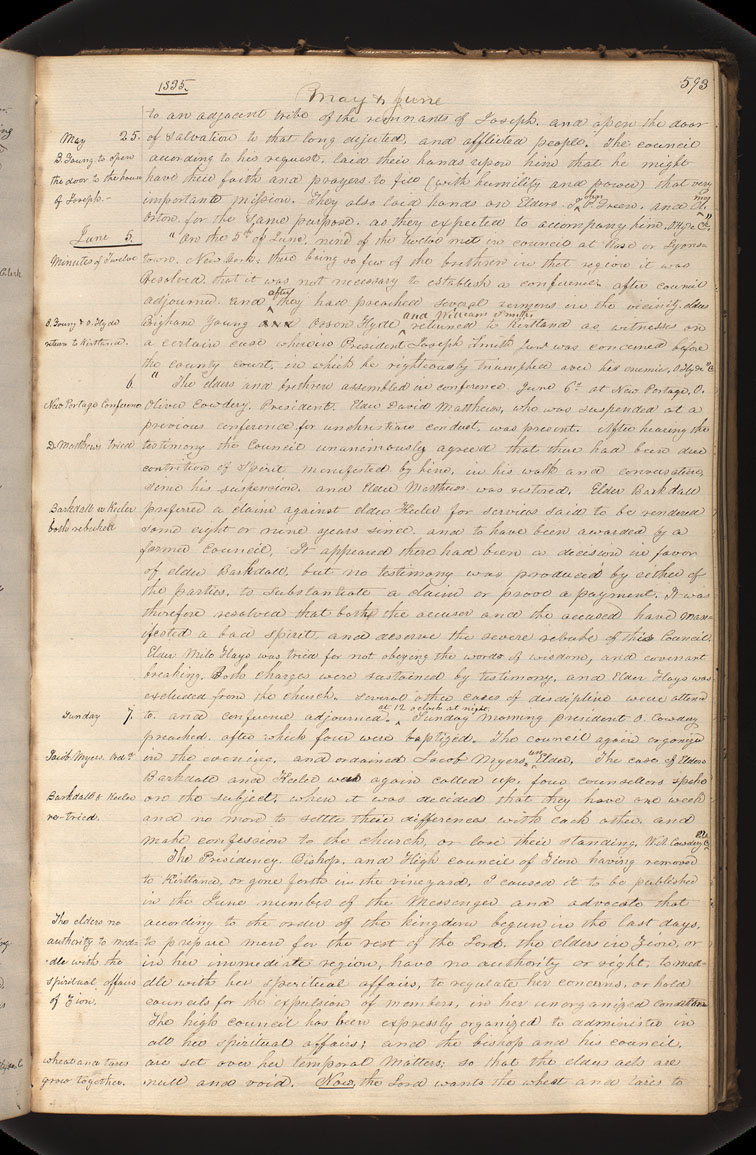 1835.
593
May & June
to an adjacent tribe of the remnants of Joseph. and open the door
May 25.
of Salvation to that long dejected, and afflicted people. The council
B Young to open
according to his request, laid their hands upon him that he might
the door to the house
have their faith and prayers to fill (with humility and power) that very
of Joseph.-
important mission. They also laid hands on Elders John P. Green, and A.
Orton for the same purpose, as they expected to accompany him. O. Hyde Clk."
June 5.
"On the 5th of June, nine of the twelve met in council at Rose or Lyons-
Minutes of Twelve
town, New York; there being so few of the brethren in that region it was
Resolved that it was not necessary to establish a conference. after council
adjourned and after they had preached several sermons in the vicinity, elders
B. Young & O. Hyde
Brigham Young Orson Hyde and William Smith returned to Kirtland as witnesses on
return to Kirtland.
a certain case wherein President Joseph Smith Jun. was concerned before
the county court, in which he righteously triumphed over his enemies, O. Hyde" C.
6.
"The elders and brethren assembled in conference June 6th at New Portage, O.
New Portage Conference
Oliver Cowdery, President. Elder David Matthews, who was suspended at a
previous conference for unchristian conduct, was present. After hearing the
D. Matthews tried
testimony the Council unanimously agreed that there had been due
contrition of Spirit manifested by him, in his walk and conversation,
since his suspension, and Elder Matthews was restored. Elder Barkdall
Barkdall & Keeler
preferred a claim against elder Keeler for services said to be rendered
both rebuked
some eight or nine years since, and to have been awarded by a
former council. It appeared there had been a decision in favor
of elder Barkdall, but no testimony was produced by either of
the parties, to substantiate a claim or prove a payment. It was
therefore resolved that both the accuser and the accused have man-
ifested a bad spirit, and deserve the severe rebuke of this Council.
Elder Milo Hays was tried for not obeying the words of wisdom, and covenant
breaking. Both charges were sustained by testimony, and Elder Hays was
excluded from the church. Several other cases of discipline were attend
Sunday 7.
to. and conference adjourned. at 12 o'clock at night. Sunday morning president O. Cowdery
preached, after which four were baptized. The council again organized
Jacob Myers Ordd.
in the evening, and ordained Jacob Myers, an Elder. The case of Elders
Barkdall and Keeler was again called up, four counsellors spoke
Barkdall & Keeler
on the subject; when it was decided that they have one week
re-tried.
and no more to settle their differences with each other, and
make confession to the church, or lose their standing. W. A. Cowdery C."
The Presidency, Bishop, and High council of Zion having removed
to Kirtland, or gone forth in the vineyard, I caused it to be published
in the June number of the Messenger and advocate that
The elders no
according to the order of the kingdom begun in the last days,
authority to med-
to prepare men for the rest of the Lord, the elders in Zion, or
dle with the
in her immediate region, have no authority or right, to med-
spiritual affairs
dle with her spiritual affairs, to regulate her concerns, or hold
of Zion.
councils for the expulsion of members, in her unorganized condition
The high council has been expressly organized to administer in
all her spiritual affairs; and the bishop and his council,
wheat and tares
are set over her temporal matters; so that the elders acts are
grow together.
null and void. Now, the Lord wants the wheat and tares to